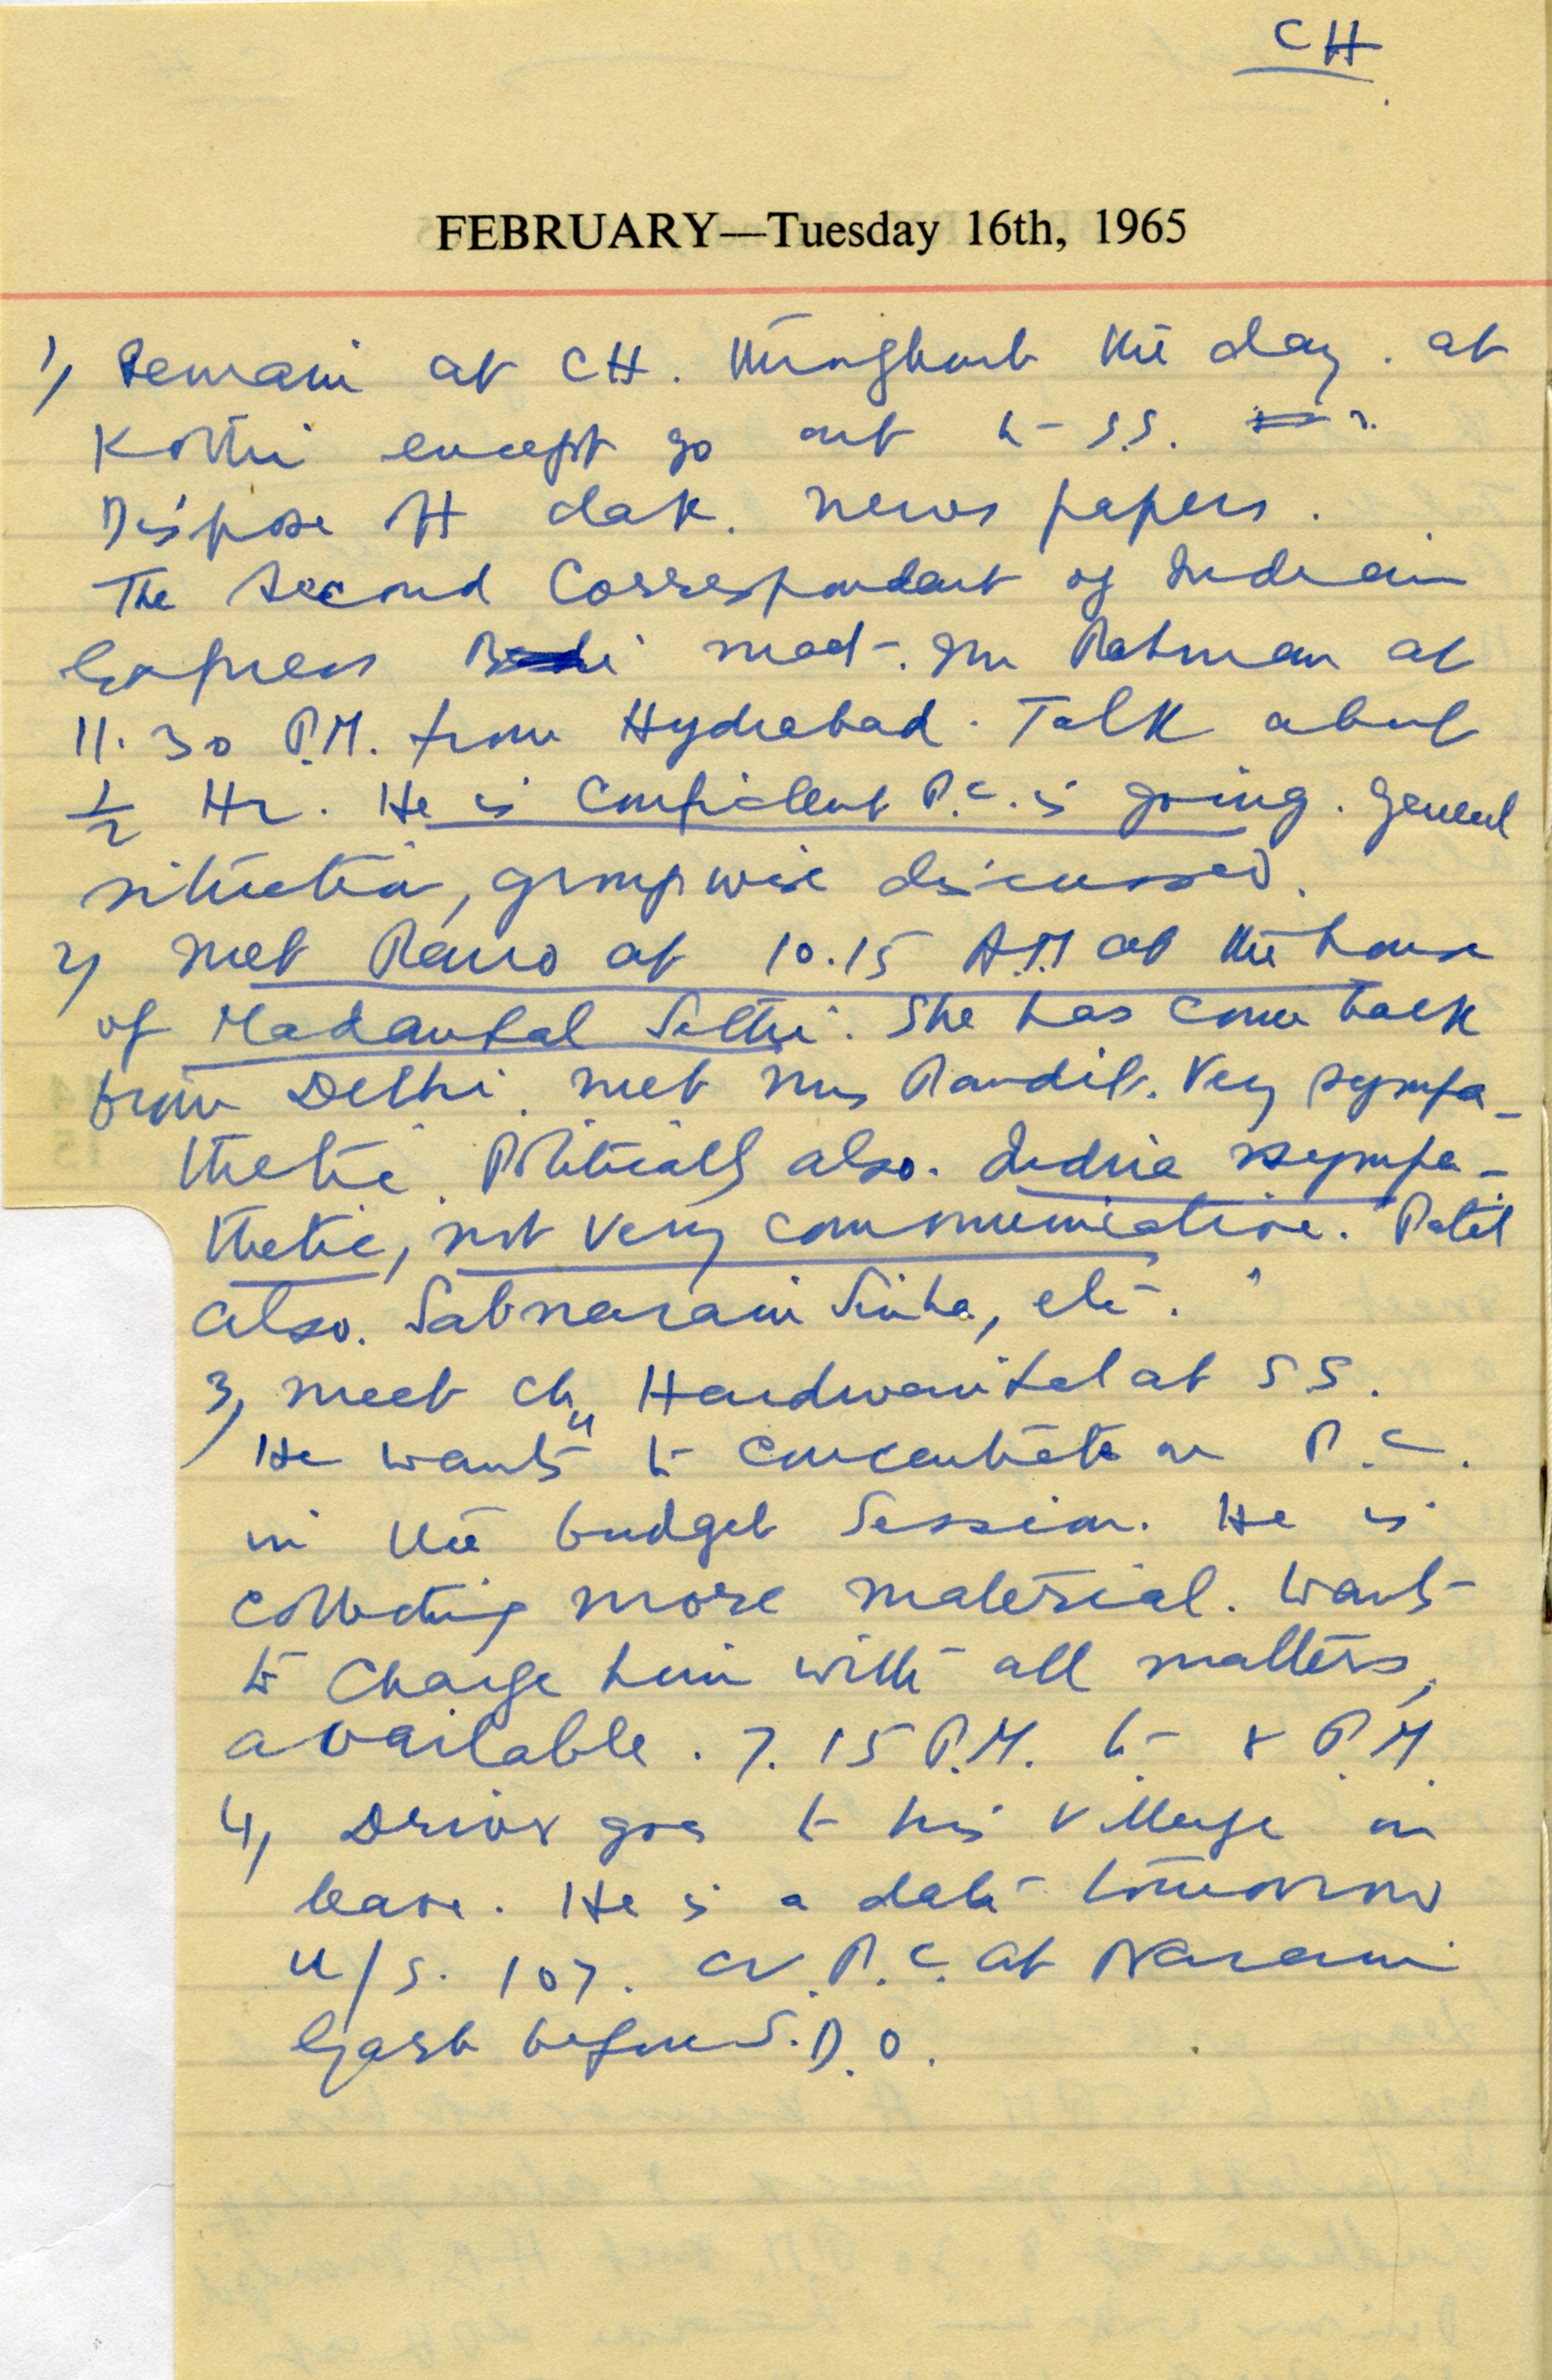 CH
FEBRUARY—Tuesday 16th, 1965
1) Remain at CH. throughout the day. at
Kothi except go out to S.S.
Dispose off dak. news papers.
The Second Correspondent of Indian
Express met. Mr Rahman at
11.30 P.M. from Hydrabad. Talk about
½ Hr. He is Confident P.C. is going. General
situation, groupwise discussed.
2) Met Rano at 10.15 A.M at the house
of Madanlal Sethi. She has come back
from Delhi. met Mrs Pandit. Very sympa-
thetic. Politically also. Indira sympa-
thetic, not very communicative. Patil
also. Satnarain Sinha, etc.
3) meet Ch. Hardwarilal at SS.
He wants to concentrate on P.C.
in the budget Session. He is
collecting more material. Wants
to Charge him with all matters,
available. 7.15 P.M. to 8 P.M.
4) Driver goes to his village on
leave. He is a date tomorrow
u/s. 107. Cr. P.C. at Narain
Garh before S.D.O.